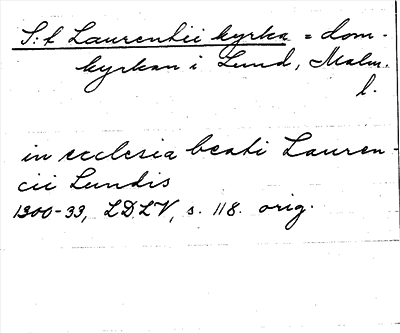 S:t Laurentii kyrka = dom-
kyrkan i Lund, Malm.
l.
in ecclesia beati Lauren-
cii Lundis
1300-33, LDLV, s. 118. orig.